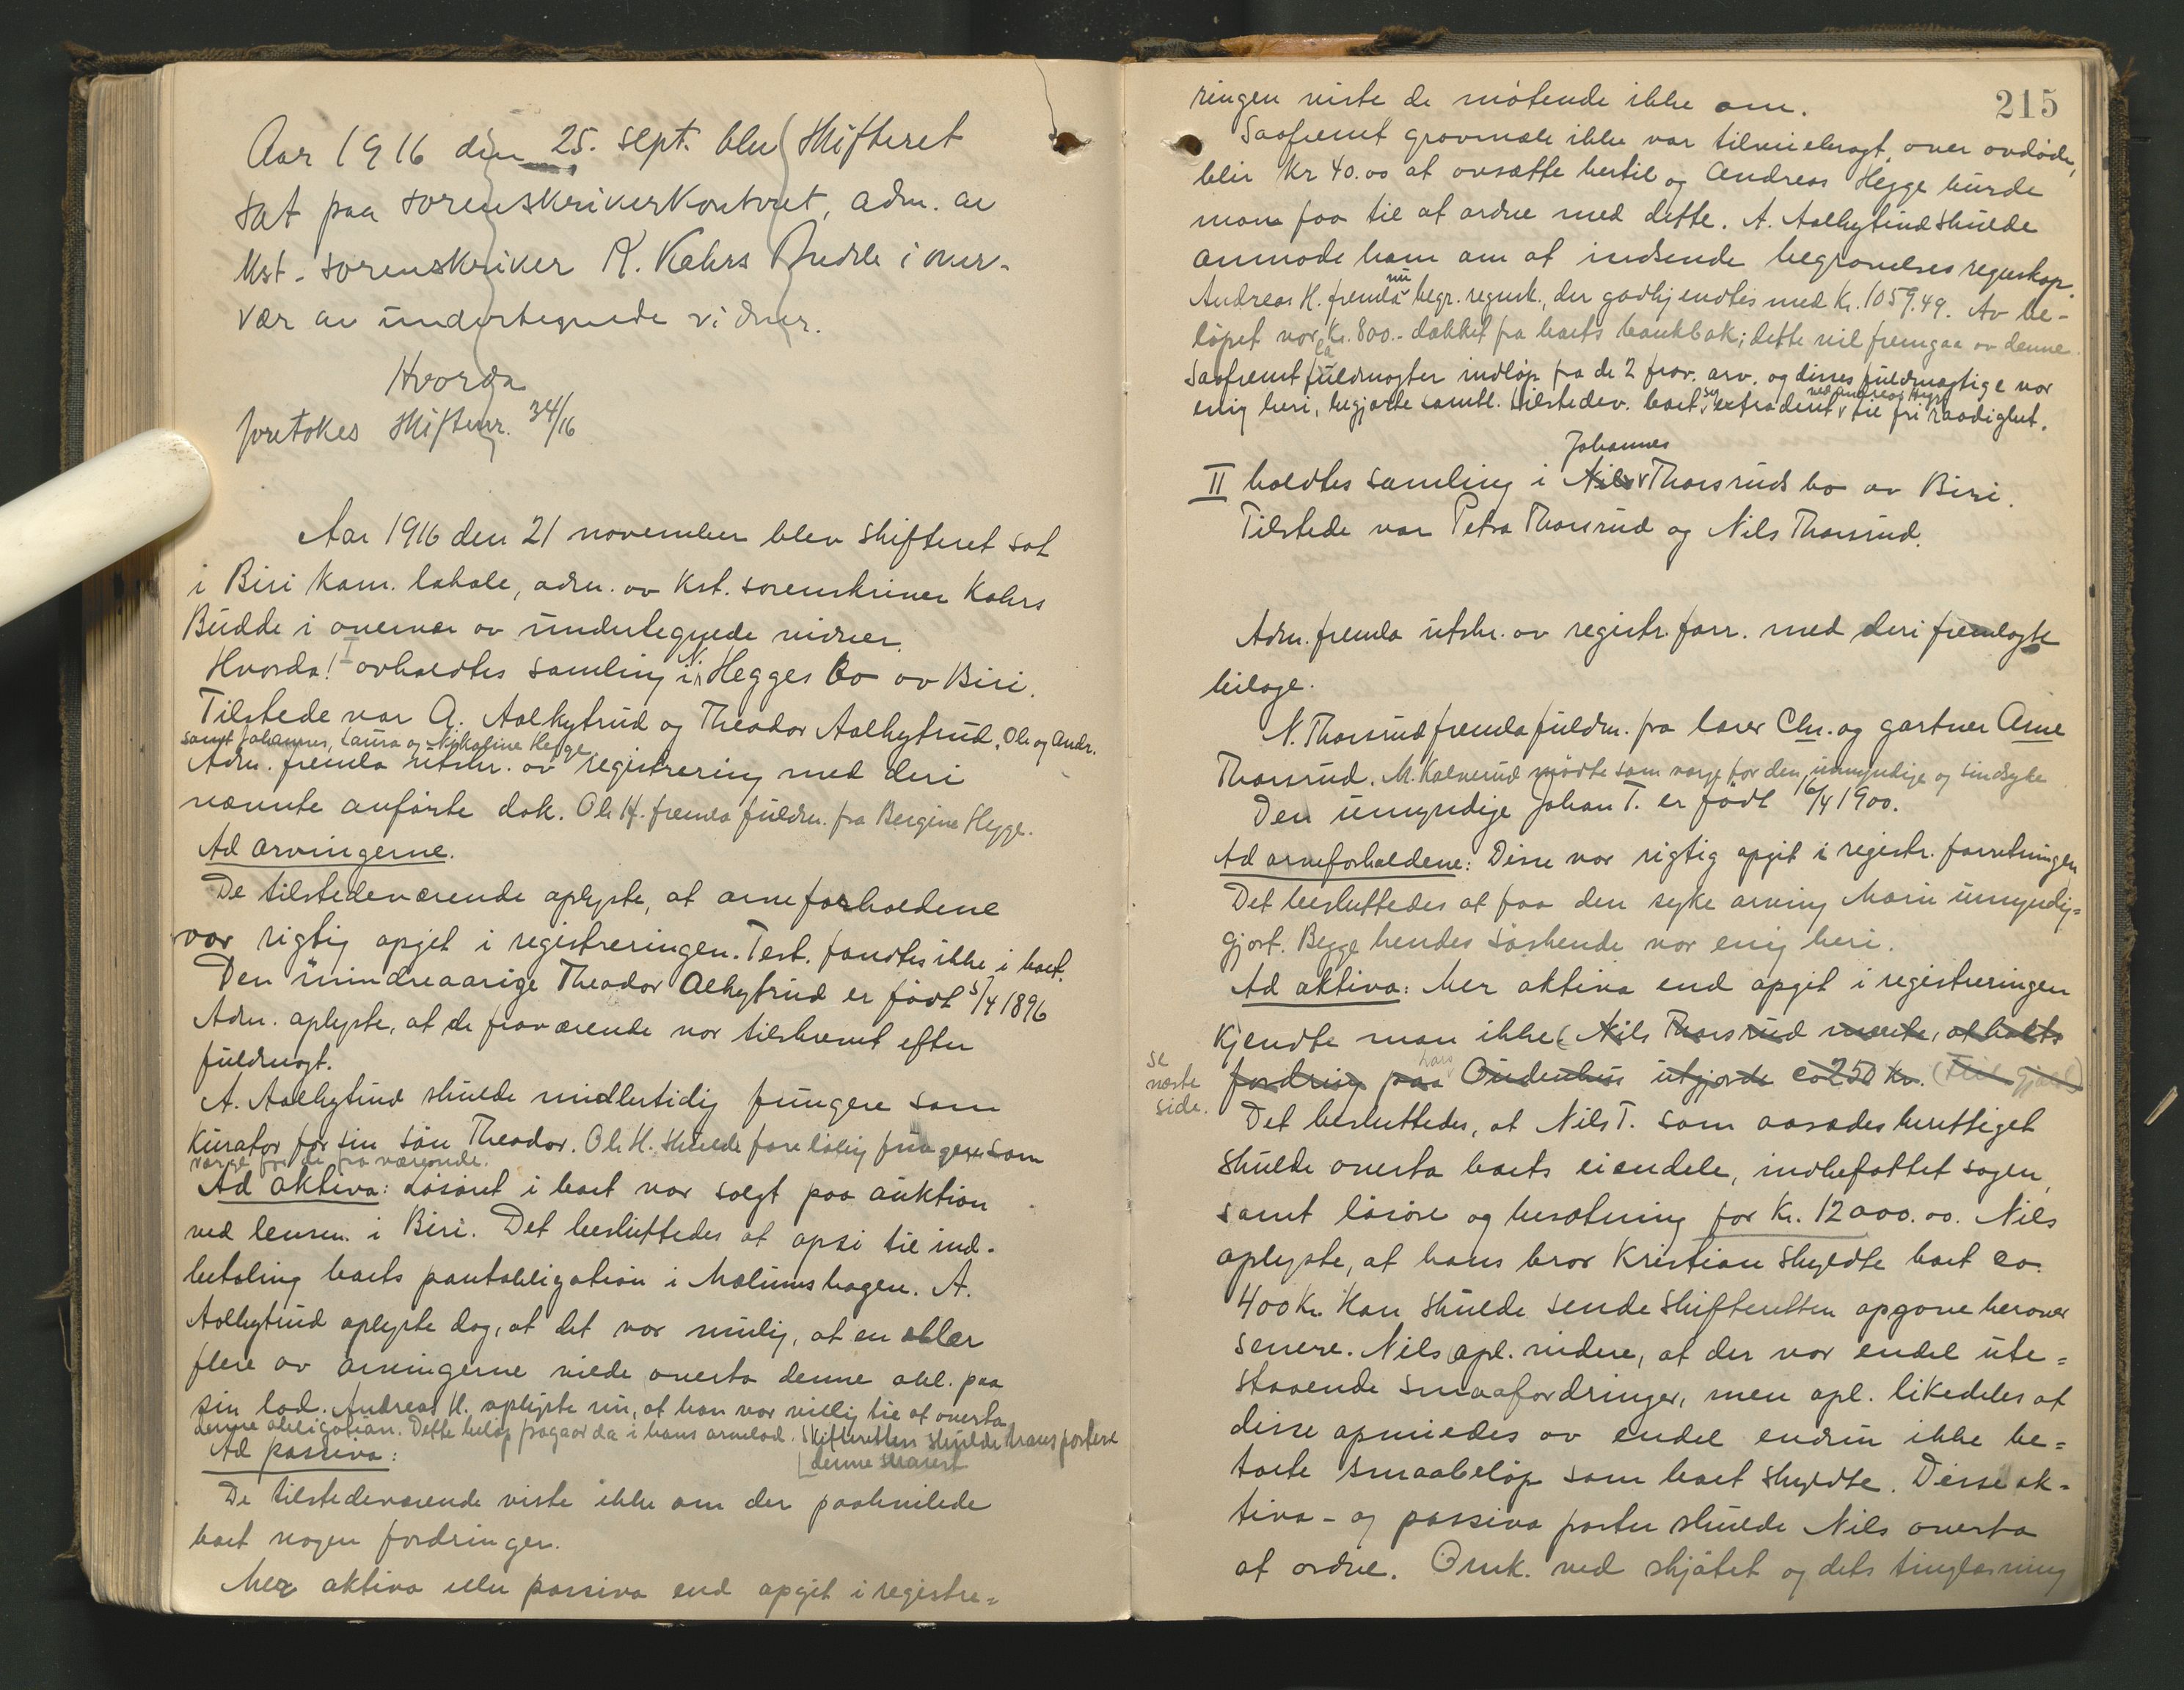 Aar 1916 den 25. sept. blev skifteret
sat paa sorenskriverkontoret, adm. av
kst. sorenskriver K. Kahrs Budde i over-
vær av undertegnede vidner.
Hvorda
foretokes skiftenr. 34/16
Aar 1916 den 21 november blev skifteret sat
i Biri kom. lokale, adm. av kst. sorenskriver Kahrs
Budde i overvær av undertegnede vidner.
Hvorda! I avholdtes samling i N. Hegges bo av Biri.
Tilstede var A. Aalhytrud og Theodor Aalhytrud, Ole og Andr.
samt Johannes, Laura og Nikoline Hegge
Adm. fremla utskr. av registrering med deri
nævnte anførte dok. Ole H. fremla fuldm. fra Bergine Hegge.
Ad arvingerne.
De tilstedeværende oplyste, at arveforholdene
var rigtig opgit i registreringen. Test. fandtes ikke i boet.
Den mindreaarige Theodor Aalhytrud er født 5/4 1896
Adm. oplyste, at de fraværende var tilskrevet efter
fuldmagt.
A. Aalhytrud skulde midlertidig fungere som
kurator for sin søn Theodor. Ole H. skulde foreløbig fungere som
værge for de fraværende.
Ad aktiva: Løsøret i boet var solgt paa auktion
ved lensm. i Biri. Det besluttedes at opsi til ind-
betaling boets pantobligation i Mælumshagen. A.
Aalhytrud oplyste dog, at det var mulig, at en eller
flere av arvingerne vilde overta denne obl. paa
sin lod. Andreas H. oplyste nu, at han var villig til at overta
denne obligation. Dette beløp fragaar da i hans arvelod. Skifteretten skulde transportere
denne snarest
Ad passiva:
De tilstedeværende viste ikke om der paahvilede
boet nogen fordringer.
Mer aktiva eller passiva end opgit i registre-
215
ringen viste de møtende ikke om.
Saafremt gravmæle ikke var tilveiebragt over avdøde,
blir kr 40.00 at avsætte hertil og Andreas Hegge burde
man faa til at ordne med dette. A. Aalhytrud skulde
anmode ham om at indsende begravelsesregnskap.
Andreas H. fremla nu begr. regnsk., der godkjendtes med kr. 1059.49. Av be-
løpet var ca kr. 800.- dækket fra boets bankbok; dette vil fremgaa av denne.
Saafremt fuldmagter indløp fra de 2 frav. arv. og disses fuldmægtige var
enig heri, begjærte samtl. tilstedev. boet sig extradert ved Andreas Hegge til fri raadighet.
II holdtes samling i Nils Johannes Thorsruds bo av Biri.
Tilstede var Petra Thorsrud og Nils Thorsrud.
Adm. fremla utskr. av registr. forr. med deri fremlagte
bilage.
N. Thorsrud fremla fuldm. fra lærer Chr. og gartner Arne
Thorsrud. M. Kalverud mødte som verge for den umyndige og sindsyke
Den umyndige Johan T. er født 16/4 1900.
Ad arveforholdene: Disse var rigtig opgit i registr. forretningen
Det besluttedes at faa den syke arving Marie umyndig-
gjort. Begge hendes søskende var enig heri.
Ad aktiva: Mer aktiva end opgit i registreringen
kjendte man ikke (Nils Thorsrud mente, at boets
fordring paa hans Oudenhus utgjorde ca 250 kr. (til gjæld)
se
næste
side.
Det besluttedes, at Nils T. som aasædesberettiget
skulde overta boets eiendele, indbefattet sagen,
samt løsøre og besætning for kr. 12000.00. Nils
oplyste, at hans bror Kristian skyldte boet ca.
400 kr. Han skulde sende skifteretten opgave herover
senere. Nils opl. videre, at der var endel ute-
staaende smaafordringer, men opl. likeledes at
disse opveiedes av endel endnu ikke be-
talte smaabeløp som boet skyldte. Disse ak-
tiva- og passiva poster skulde Nils overta
at ordne. Omk. ved skjøtet og dets tinglæsning